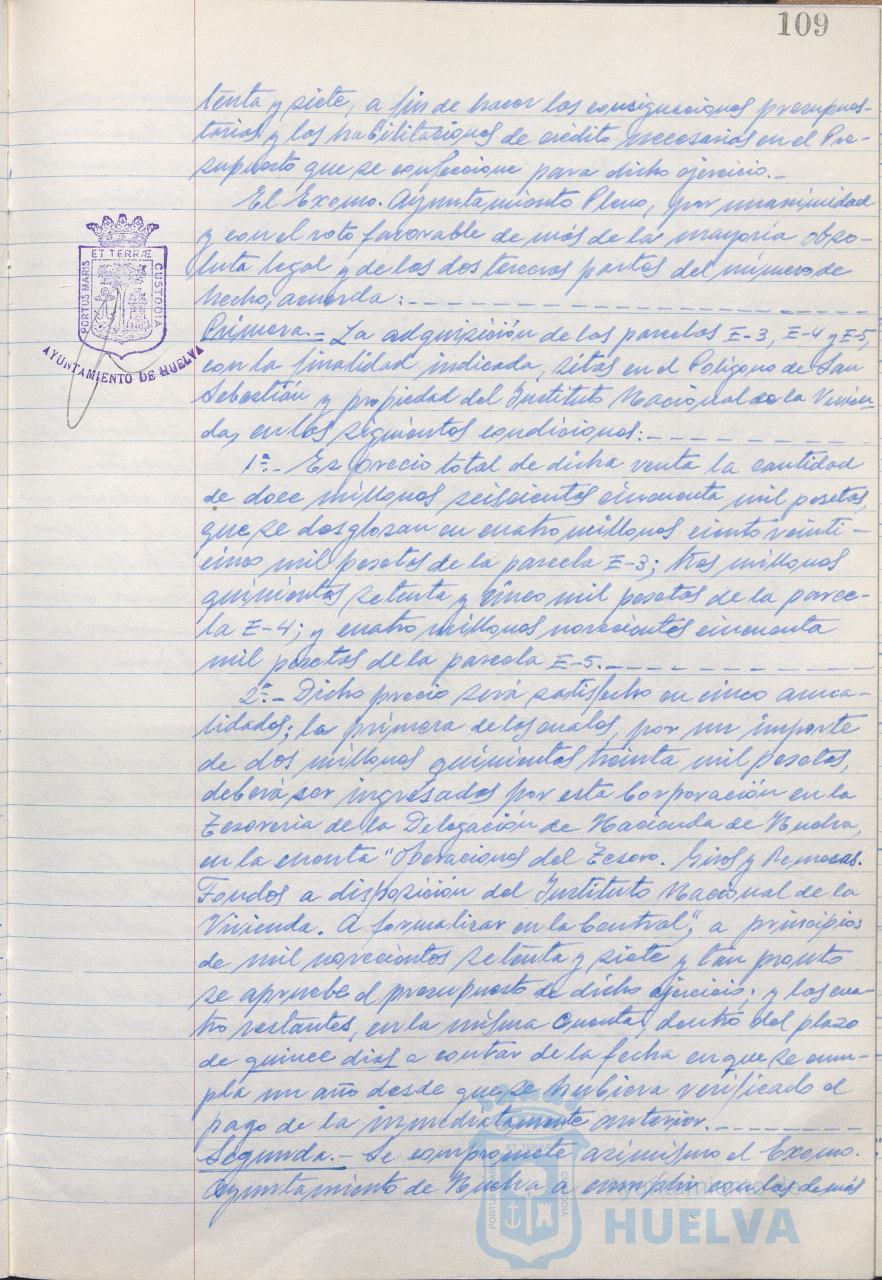 109
tenta y siete, a fin de hacer las consignaciones presupues-
tarias y las habilitaciones de crédito necesarias en el Pre-
supuesto que se confeccione para dicho ejercicio.-
El Excmo. Ayuntamiento Pleno, por unanimidad
y con el voto favorable de más de la mayoría abso-
luta legal y de las dos terceras partes del número de
hecho, acuerda:-
Primera.- La adquisición de las parcelas E-3, E-4 y E-5,
con la finalidad indicada, sitas en el Polígono de San
Sebastián y propiedad del Instituto Nacional de la Vivien-
da, en las siguientes condiciones:-
1ª.- Es precio total de dicha venta la cantidad
de doce millones seiscientas cincuenta mil pesetas,
que se desglosan en cuatro millones ciento veinti-
cinco mil pesetas de la parcela E-3; tres millones
quinientas setenta y cinco mil pesetas de la parce-
la E-4; y cuatro millones novecientas cincuenta
mil pesetas de la parcela E-5.-
2ª.- Dicho precio será satisfecho en cinco anua-
lidades; la primera de las cuales, por un importe
de dos millones quinientas treinta mil pesetas,
deberá ser ingresados por esta Corporación en la
Tesorería de la Delegación de Hacienda de Huelva,
en la cuenta "Operaciones del Tesoro. Giros y Remesas.
Fondos a disposición del Instituto Nacional de la
Vivienda. A formalizar en la Central", a principios
de mil novecientos setenta y siete y tan pronto
se apruebe el presupuesto de dicho ejercicio; y las cua-
tro restantes, en la misma cuenta, dentro del plazo
de quince días a contar de la fecha en que se cum-
pla un año desde que se hubiera verificado el
pago de la inmediatamente anterior.-
Segunda.- Se compromete asimismo el Excmo.
Ayuntamiento de Huelva a cumplir con las demás
PORTUS MARIS ET TERRÆ CUSTODIA
AYUNTAMIENTO DE HUELVA
PORTUS MARIS ET TERRÆ CUSTODIA
Ayuntamiento de
HUELVA